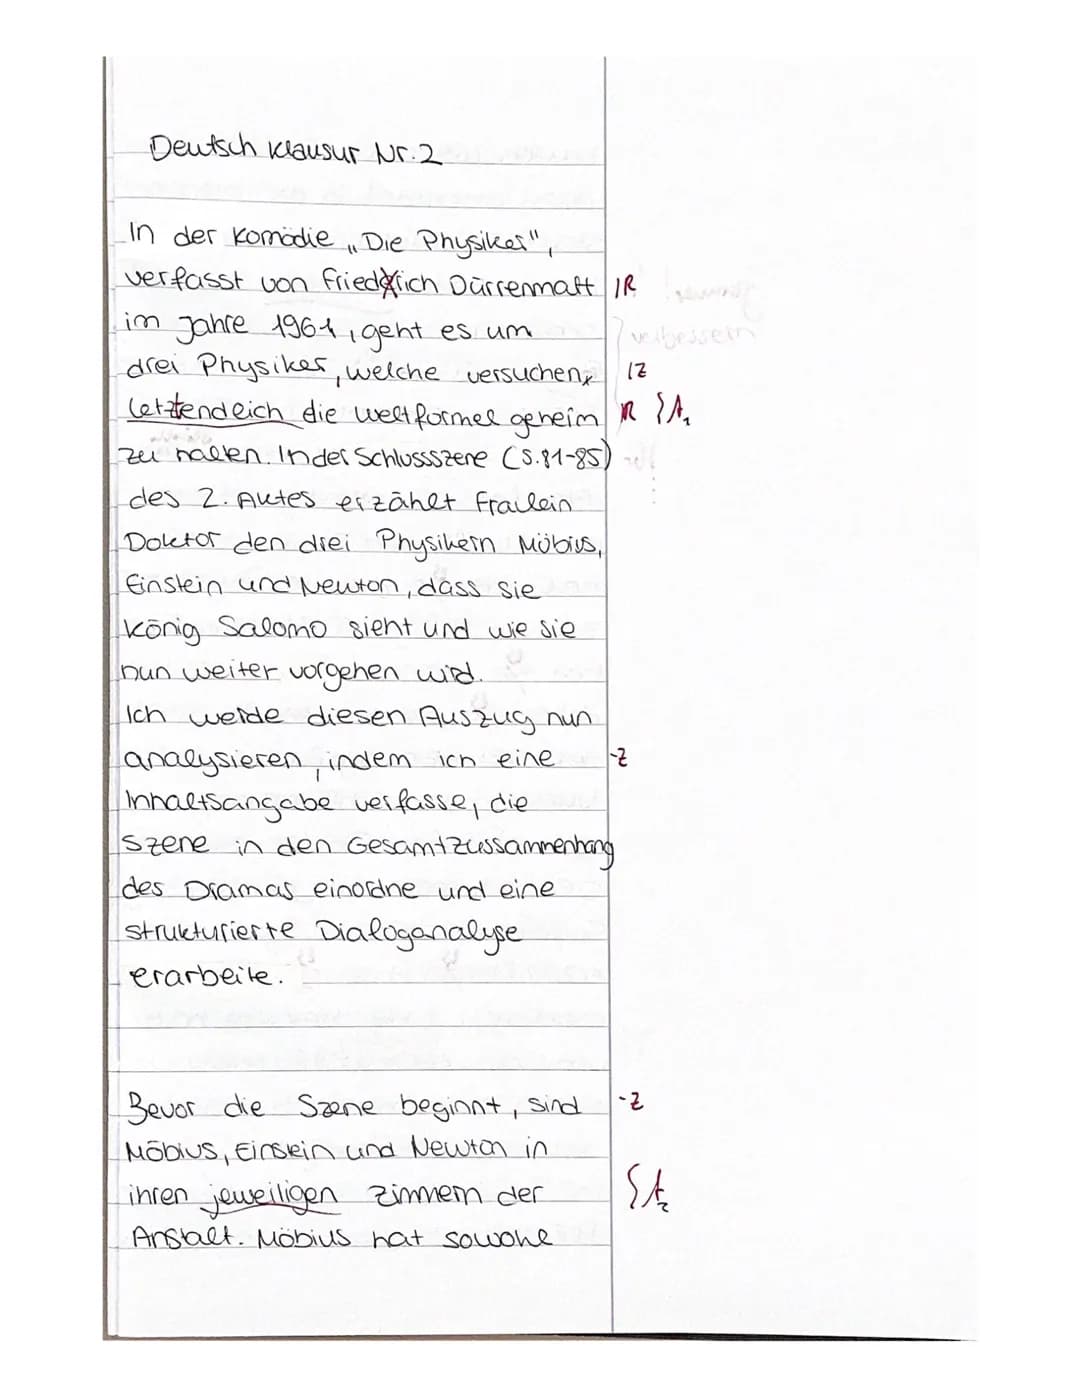 Deutsch Klausur Nr. 2
In der Komödie „Die Physiker",
verfasst von Friedrich Dürrenmatt |R
im Jahre 1961, geht es um
verbessern
drei Physiker, welche versuchen, |Z
letztendlich die Weltformel geheim R }A1
zu halten. In der Schlussszene (S.81-85)
des 2. Aktes erzählt Fräulein
Doktor den drei Physikern Möbius,
Einstein und Newton, dass sie
König Salomo sieht und wie sie
nun weiter vorgehen wird.
Ich werde diesen Auszug nun
analysieren, indem ich eine -Z
Inhaltsangabe verfasse, die
Szene in den Gesamtzussammenhang
des Dramas einordne und eine
strukturierte Dialoganalyse
erarbeite.
Bevor die Szene beginnt, sind -Z
Möbius, Einstein und Newton in
ihren jeweiligen Zimmern der }A2
Anstalt. Möbius hat sowohl